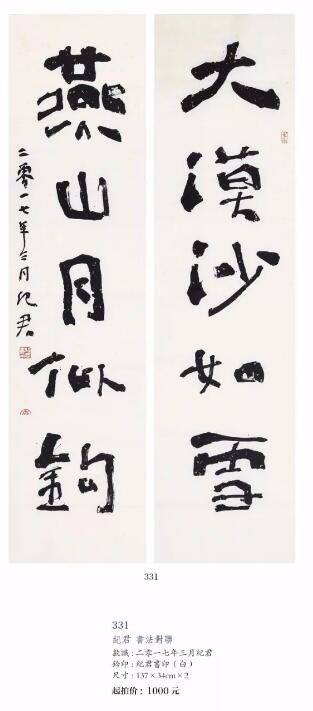 大漠沙如雪
燕山月似鈎
二零一七年三月纪君
331
331
紀君 書法對聯
款識：二零一七年三月紀君
鈐印：紀君書印（白）
尺寸：137×34cm×2
起拍價：1000 元